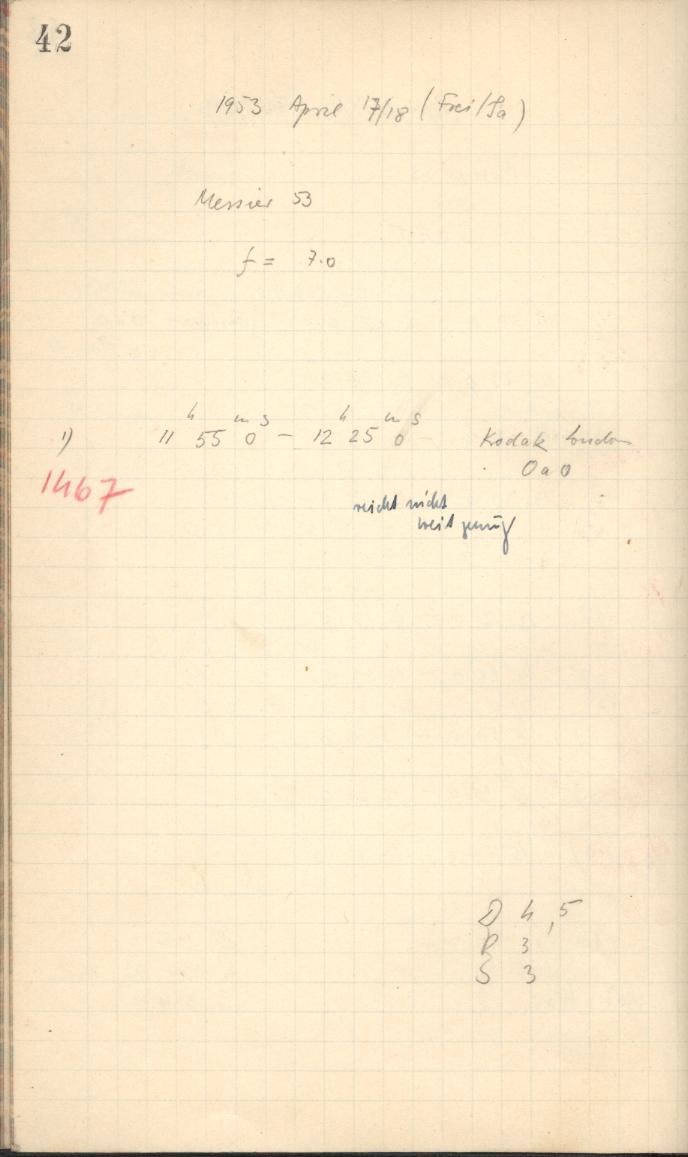 42
1953 April 17/18 (Frei/Sa)
Messier 53
f = 7.0
1) 11h 55m 0s – 12h 25m 0s Kodak London
OaO
1467
reicht nicht
weit genug
D 4,5
R 3
S 3